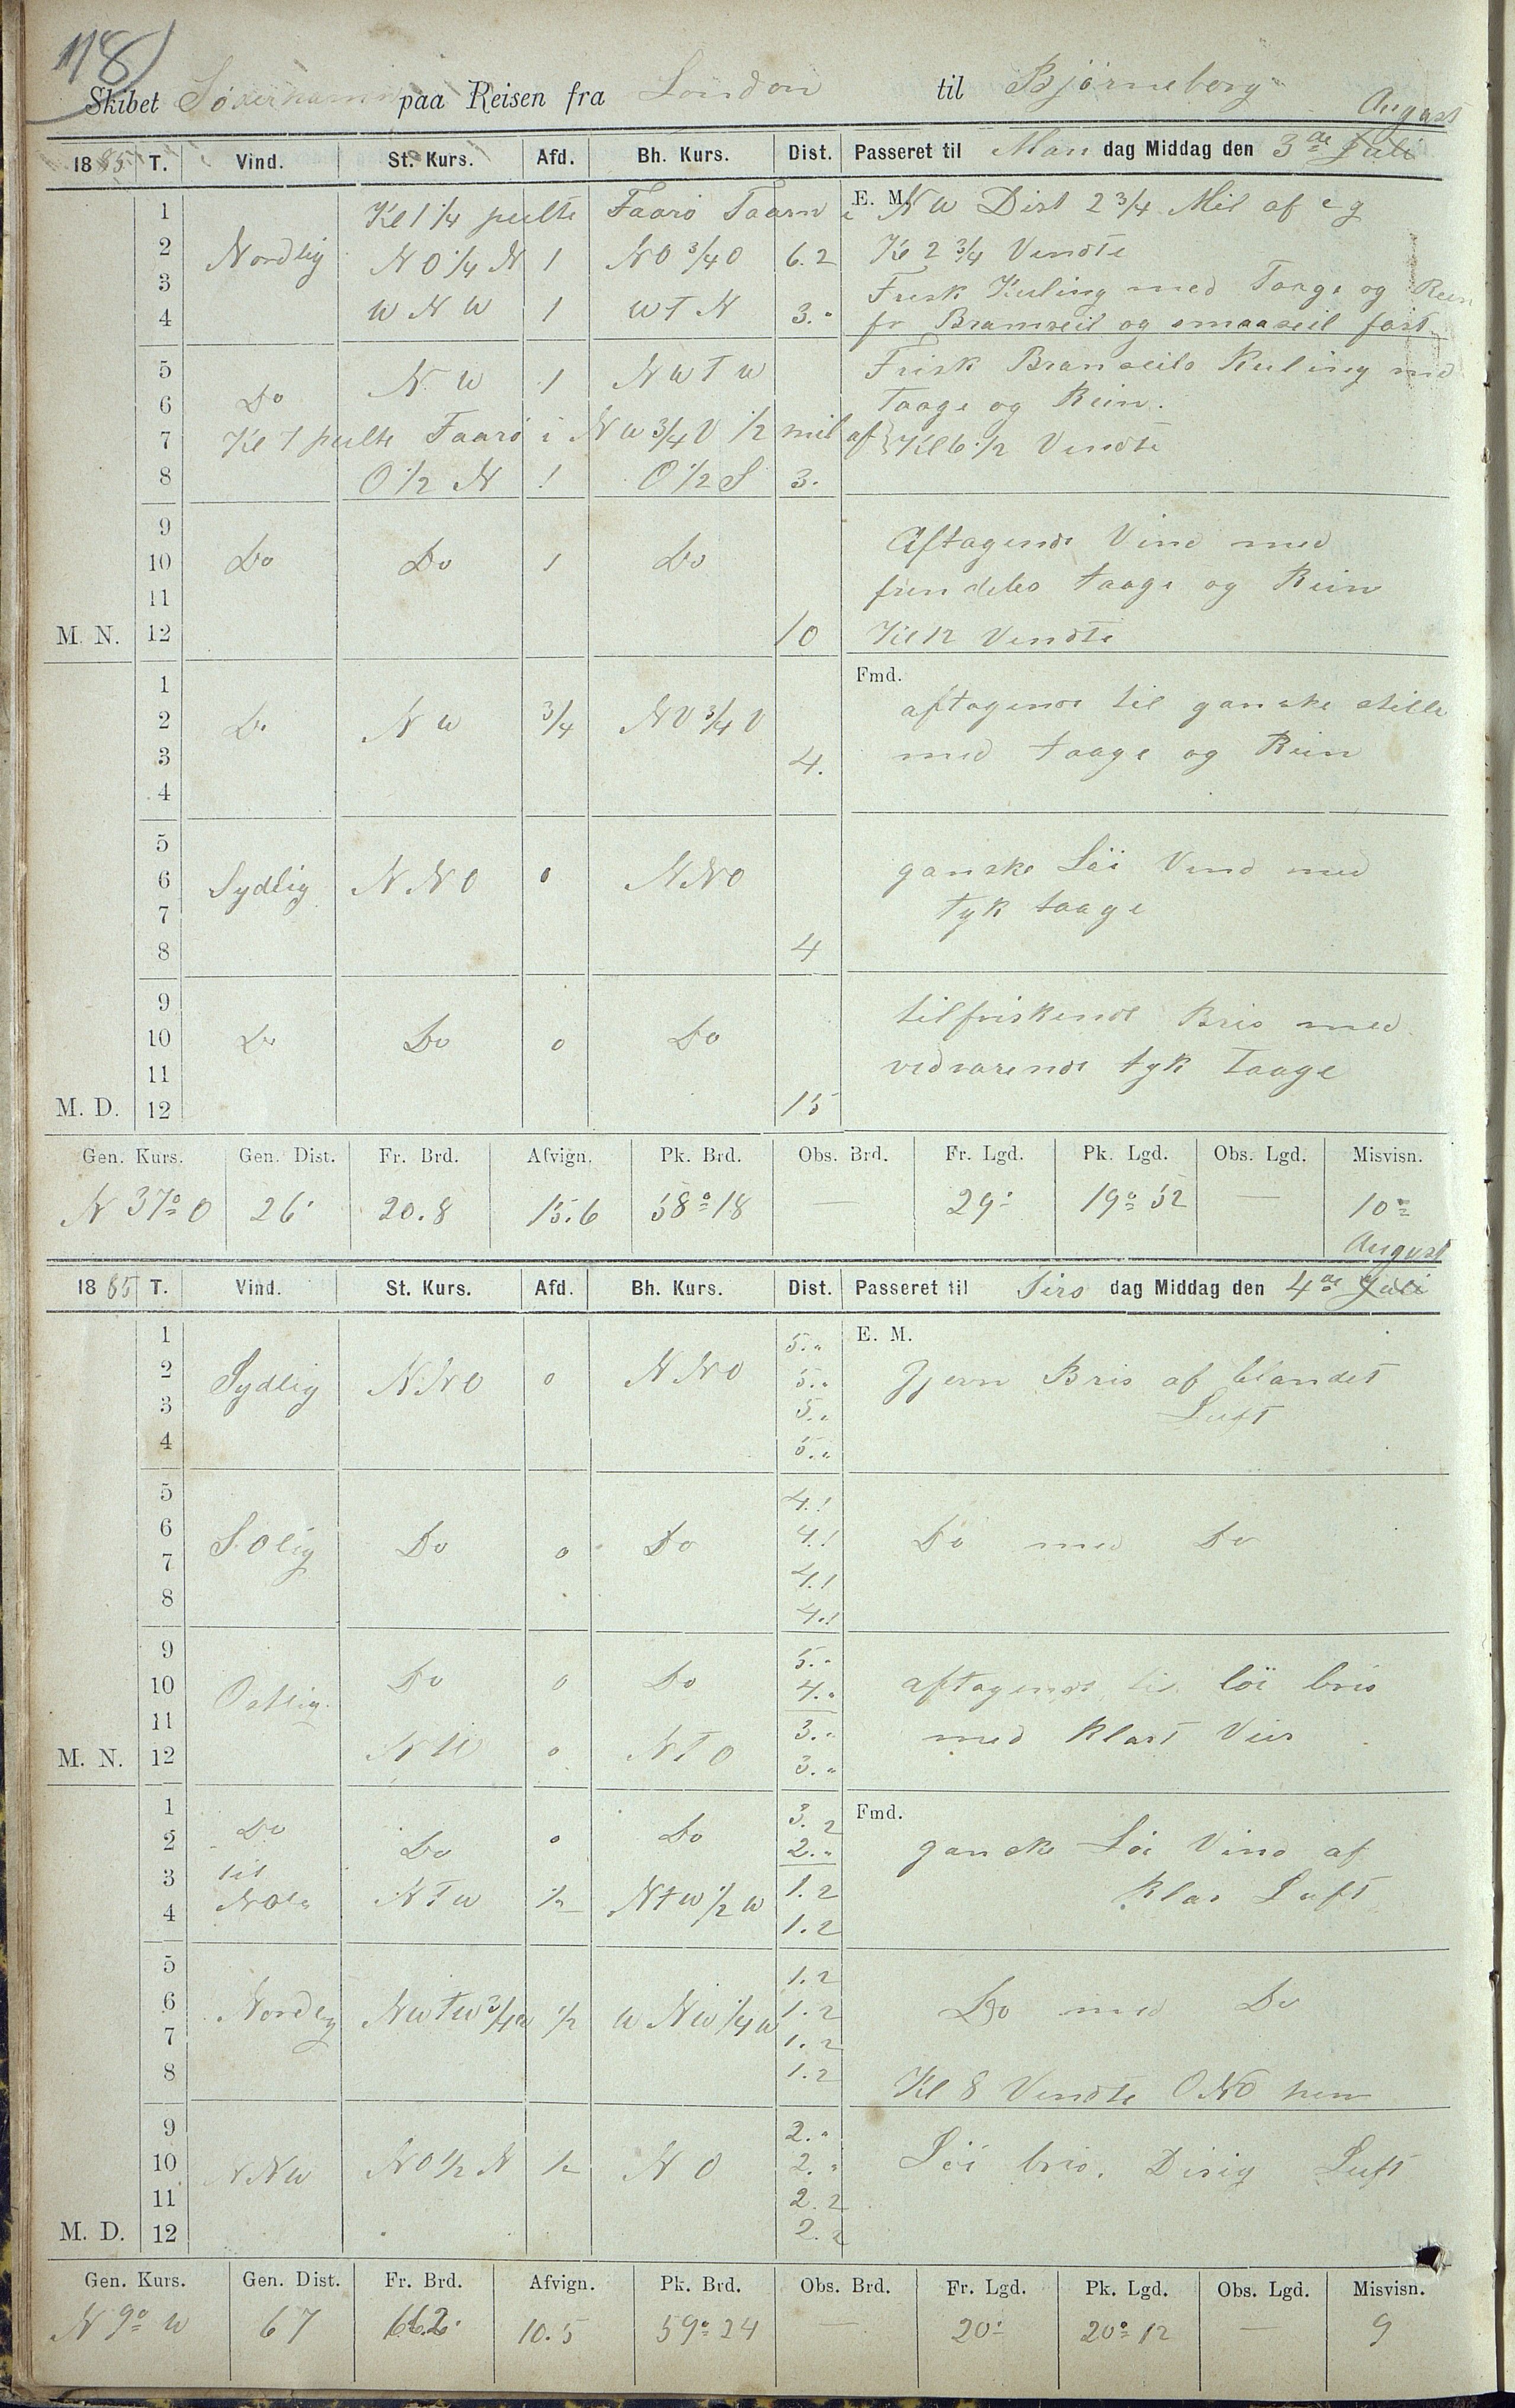 118)
Skibet Söderhamn paa Reisen fra London til Bjørneborg
August
1885 T. Vind. St. Kurs. Afd. Bh. Kurs. Dist. Passeret til Man dag Middag den 3de Juli
1 Kl 1 1/4 peilte Faarö Taarn i E. M. NW Dist 2 3/4 Mil af eg
2 Nordlig NO 1/4 N 1 NO 3/4 O 6.2 Kl 2 3/4 Vendte
3 Frisk Kuling med Taage og Rein
4 WNW 1 WTN 3." fr Bramseil og smaaseil fast
5 NW 1 NWTW Frisk Bramseils Kuling med
6 Do Taage og Rein.
7 Kl 7 peilte Faarö i NW 3/4 V 1/2 mil af Kl 6 1/2 Vendte
8 O 1/2 N 1 O 1/2 S 3.
9 Aftagende Vind med
10 Do Do 1 Do
11 fremdeles taage og Rein
M. N. 12 10 Kl 12 Vendte
1 Fmd. aftagende til ganske stille
2 Do NW 3/4 NV 3/4 V
3 4. med taage og Rein
4
5
6 Sydlig NNO 0 NNO ganske Löi Vind med
7 tyk taage
8 4
9 tilfriskende Bris med
10 Do Do 0 Do
11 vedvarende tyk Taage
M. D. 12 15
Gen. Kurs. Gen. Dist. Fr. Brd. Afvign. Pk. Brd. Obs. Brd. Fr. Lgd. Pk. Lgd. Obs. Lgd. Misvisn.
N 37° O 26' 20.8 15.6 58° 18 — 29' 19° 52 — 10°
August
1885 T. Vind. St. Kurs. Afd. Bh. Kurs. Dist. Passeret til Tirs dag Middag den 4de Juli
1 5." E. M.
2 Sydlig NNO 0 NNO 5." Jevn Bris af blandet
3 5." Luft
4 5."
5 4.1
6 SOlig Do 0 Do 4.1 Do med Do
7 4.1
8 4.1
9 5."
10 Ostlig Do 0 Do 4." aftagende til löi bris
11 3." med klart Veir
M. N. 12 0 NTO 3."
1 Do 3.2 Fmd.
2 Do 0 Do 2." ganske Löi Vind af
3 til 1.2
4 NTW 1/2 NTW 1/2 W 1.2 klar Luft
5 1.2
6 Nordlig NWTW 3/4 W 1/2 WNW 1/4 W 1.2 Do med Do
7 1.2
8 1.2 Kl 8 Vendte ONO hen
9 2."
10 NNW NO 1/2 N 1/2 NO 2." Löi bris. Disig Luft
11 2.2
M. D. 12 2.2
Gen. Kurs. Gen. Dist. Fr. Brd. Afvign. Pk. Brd. Obs. Brd. Fr. Lgd. Pk. Lgd. Obs. Lgd. Misvisn.
N 9° W 67 66.2 10.5 59° 24 — 20' 20° 12 — 9